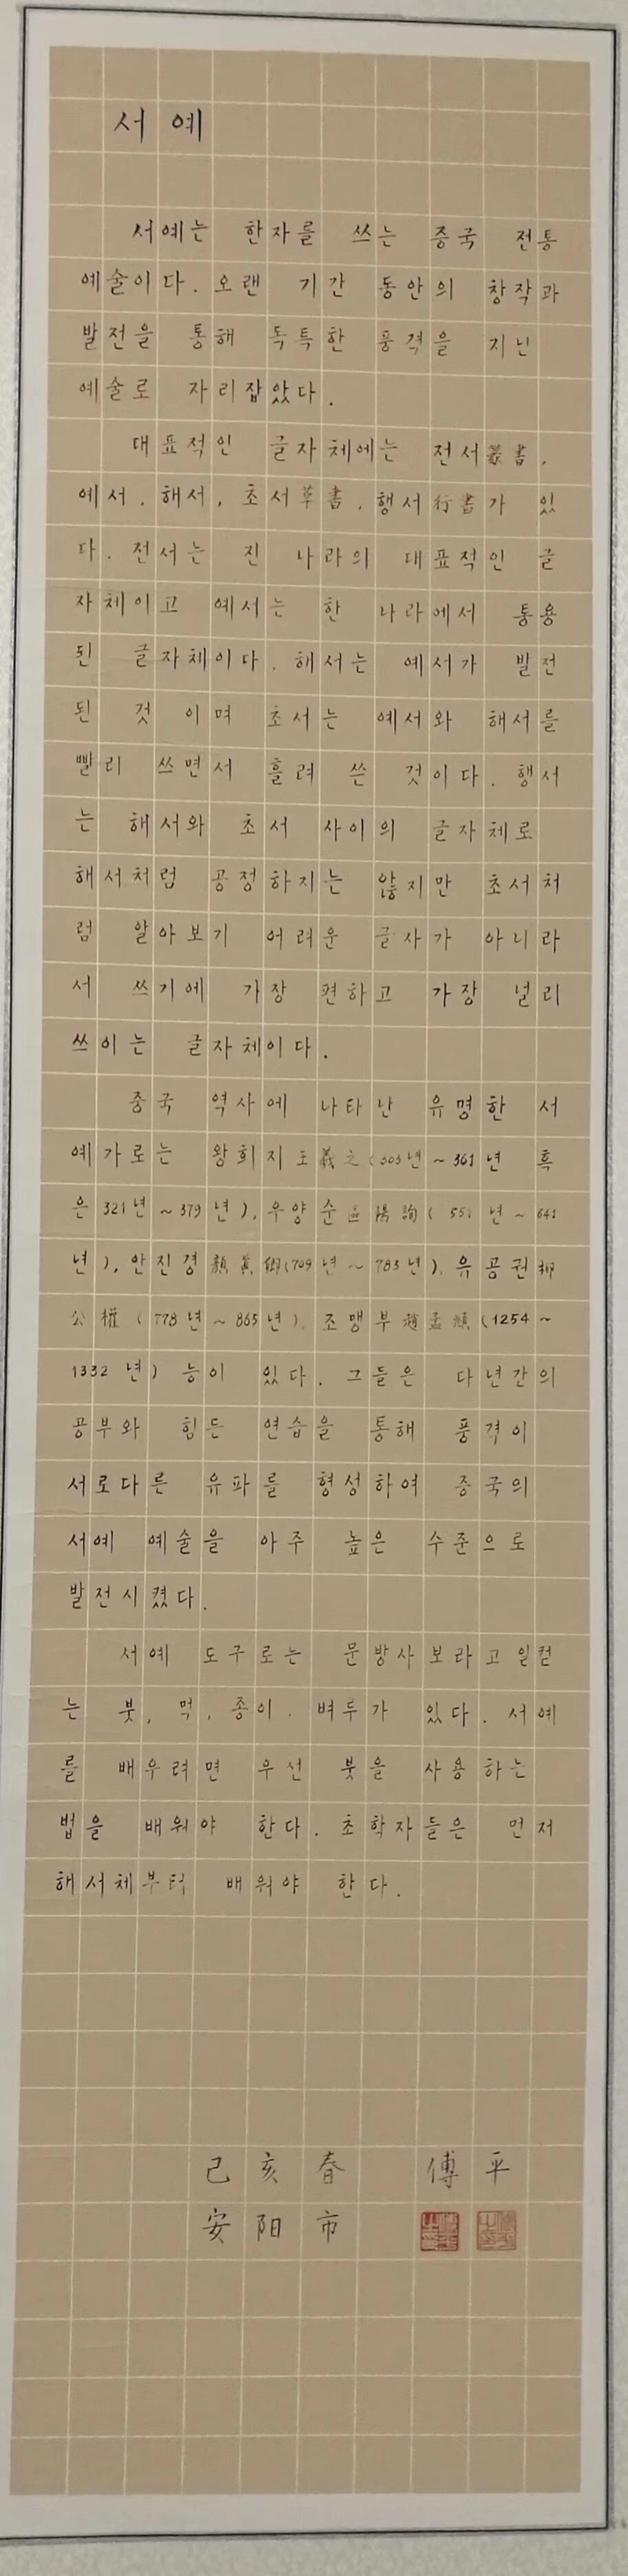 서예
서예는 한자를 쓰는 중국 전통
예술이다. 오랜 기간 동안의 창작과
발전을 통해 독특한 풍격을 지닌
예술로 자리잡았다.
대표적인 글자체에는 전서篆書,
예서, 해서, 초서草書, 행서行書가 있
다. 전서는 진 나라의 대표적인 글
자체이고 예서는 한 나라에서 통용
된 글자체이다. 해서는 예서가 발전
된 것 이며 초서는 예서와 해서를
빨리 쓰면서 흘려 쓴 것이다. 행서
는 해서와 초서 사이의 글자체로
해서처럼 공정하지는 않지만 초서처
럼 알아보기 어려운 글자가 아니라
서 쓰기에 가장 편하고 가장 널리
쓰이는 글자체이다.
중국 역사에 나타난 유명한 서
예가로는 왕희지王羲之(303년~361년 혹
은 321년~379년), 우양순 陽詢( 551 년~641
년), 안진경顏眞卿(709년~785년), 유공권柳
公權(778년~865년), 조맹부趙孟頫(1254~
1332년) 등이 있다. 그들은 다년간의
공부와 힘든 연습을 통해 풍격이
서로다른 유파를 형성하여 중국의
서예 예술을 아주 높은 수준으로
발전시켰다.
서예 도구로는 문방사보라고 일컫
는 붓, 먹, 종이, 벼루가 있다. 서예
를 배우려면 우선 붓을 사용하는
법을 배워야 한다. 초학자들은 먼저
해서체부터 배워야 한다.
己亥春 傅平
安阳市